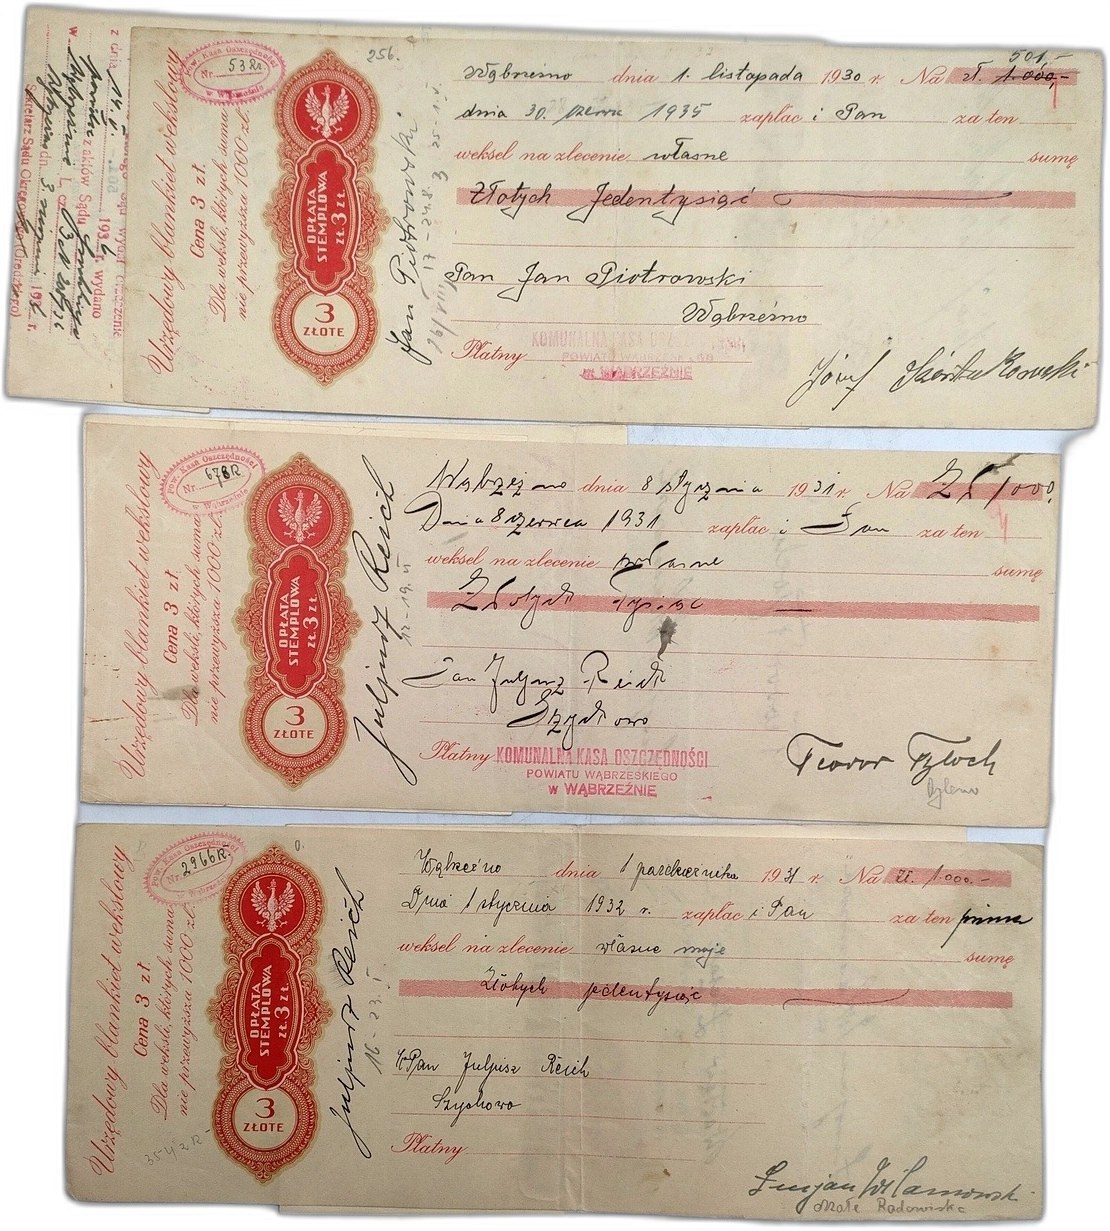 Pow. Kasa Oszczędności
Nr. 53 Rn.
w Wąbrzeźnie
Urzędowy blankiet wekslowy
Cena 3 zł.
Dla weksli, których suma
nie przewyższa 1000 zł.
OPŁATA
STEMPLOWA
ZŁ. 3 ZŁ.
3
ZŁOTE
Jan Piotrowski
256.
501,-
Wąbrzeźno dnia 1. listopada 1930 r. Na zł. 1.000,-
dnia 30. czerwca 1935 zapłac i Pan za ten
weksel na zlecenie własne sumę
Złotych Jedentysiąc
Pan Jan Piotrowski
Wąbrzeźno
Płatny KOMUNALNA KASA OSZCZĘDNOŚCI
POWIATU WĄBRZESKIEGO
w WĄBRZEŹNIE
Józef
Pow. Kasa Oszczędności
Nr 678R
w Wąbrzeźnie
Urzędowy blankiet wekslowy
Cena 3 zł.
Dla weksli, których suma
nie przewyższa 1000 zł.
OPŁATA
STEMPLOWA
ZŁ. 3 ZŁ.
3
ZŁOTE
Juljusz Reich
Wąbrzeźno dnia 8 stycznia 1931 r. Na Zł 1000.
Dnia 8 czerwca 1931 zapłac i Pan za ten
weksel na zlecenie własne sumę
Złotych Tysiąc
Pan Juljusz Reich
Szychowo
Płatny KOMUNALNA KASA OSZCZĘDNOŚCI
POWIATU WĄBRZESKIEGO
w WĄBRZEŹNIE
Teodor Tyloch
Pow. Kasa Oszczędności
Nr. 2966R.
w Wąbrzeźnie
Urzędowy blankiet wekslowy
Cena 3 zł.
Dla weksli, których suma
nie przewyższa 1000 zł.
OPŁATA
STEMPLOWA
ZŁ. 3 ZŁ.
3
ZŁOTE
3542R-
Juljusz Reich
16-23. I
Wąbrzeźno dnia 1 października 1931 r. Na zł. 1.000.-
Dnia 1 stycznia 1932 r. zapłac i Pan za ten prima
weksel na zlecenie własne moje sumę
Złotych jedentysiąc
WPan Juljusz Reich
Szychowo
Płatny
Lucjan Wilamowski
Małe Radowiska